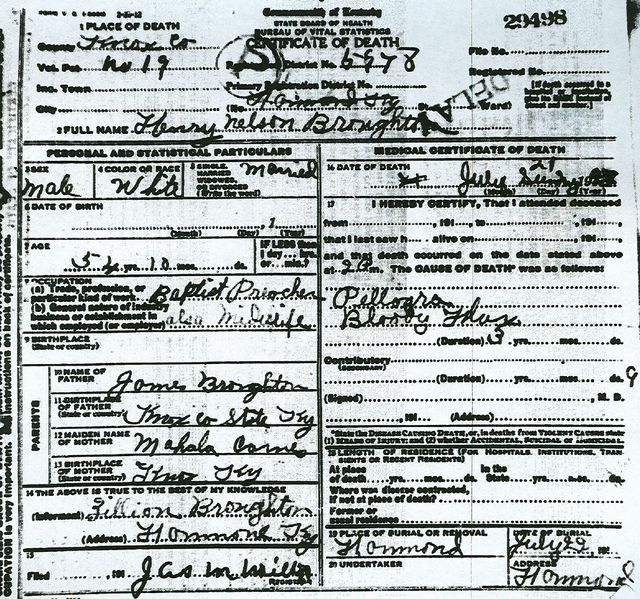 29498
1 PLACE OF DEATH
County Knox Co
Vot. Pct. No 19
Inc. Town
City
Commonwealth of Kentucky
STATE BOARD OF HEALTH
BUREAU OF VITAL STATISTICS
CERTIFICATE OF DEATH
District No. 5978
Primary Registration District No.
(No. Hammond Ky St. Ward)
File No.
Registered No.
DELAY
2 FULL NAME Henry Nelson Broughton
PERSONAL AND STATISTICAL PARTICULARS
3 SEX
Male
4 COLOR OR RACE
White
5 SINGLE, MARRIED, WIDOWED, OR DIVORCED (Write the word)
Married
6 DATE OF BIRTH
(Month) (Day) (Year)
7 AGE
54 yrs. 10 mos. ds.
IF LESS than 1 day, hrs. or min.?
8 OCCUPATION
(a) Trade, profession, or particular kind of work Baptist Preacher
(b) General nature of industry business or establishment in which employed (or employer) also Midwife
9 BIRTHPLACE
(State or country)
PARENTS
10 NAME OF FATHER James Broughton
11 BIRTHPLACE OF FATHER (State or country) Knox co State Ky
12 MAIDEN NAME OF MOTHER Mahala
13 BIRTHPLACE OF MOTHER (State or country) Knox Ky
14 THE ABOVE IS TRUE TO THE BEST OF MY KNOWLEDGE
(Informant) Broughton
(Address) Hammond Ky
15
Filed , 191 Jas M Miller
REGISTRAR
MEDICAL CERTIFICATE OF DEATH
16 DATE OF DEATH
July 21
(Month) (Day) (Year)
17 I HEREBY CERTIFY, That I attended deceased
from , 191 , to , 191 ,
that I last saw h alive on , 191 ,
and that death occurred on the date stated above
at 2 m. The CAUSE OF DEATH* was as follows:
Pellagra
Bloody Flux
(Duration) 3 yrs. mos. ds.
Contributory
(SECONDARY)
(Duration) yrs. mos. ds. 9
(Signed) , M. D.
, 191 (Address)
*State the DISEASE CAUSING DEATH, or, in deaths from VIOLENT CAUSES state
(1) MEANS OF INJURY; and (2) whether ACCIDENTAL, SUICIDAL or HOMICIDAL.
18 LENGTH OF RESIDENCE (FOR HOSPITALS, INSTITUTIONS, TRANSIENTS OR RECENT RESIDENTS)
At place of death yrs. mos. ds. In the State yrs. mos. ds.
Where was disease contracted,
if not at place of death?
Former or usual residence
19 PLACE OF BURIAL OR REMOVAL
Hammond
DATE OF BURIAL
July 22, 191
20 UNDERTAKER
ADDRESS
Hammond